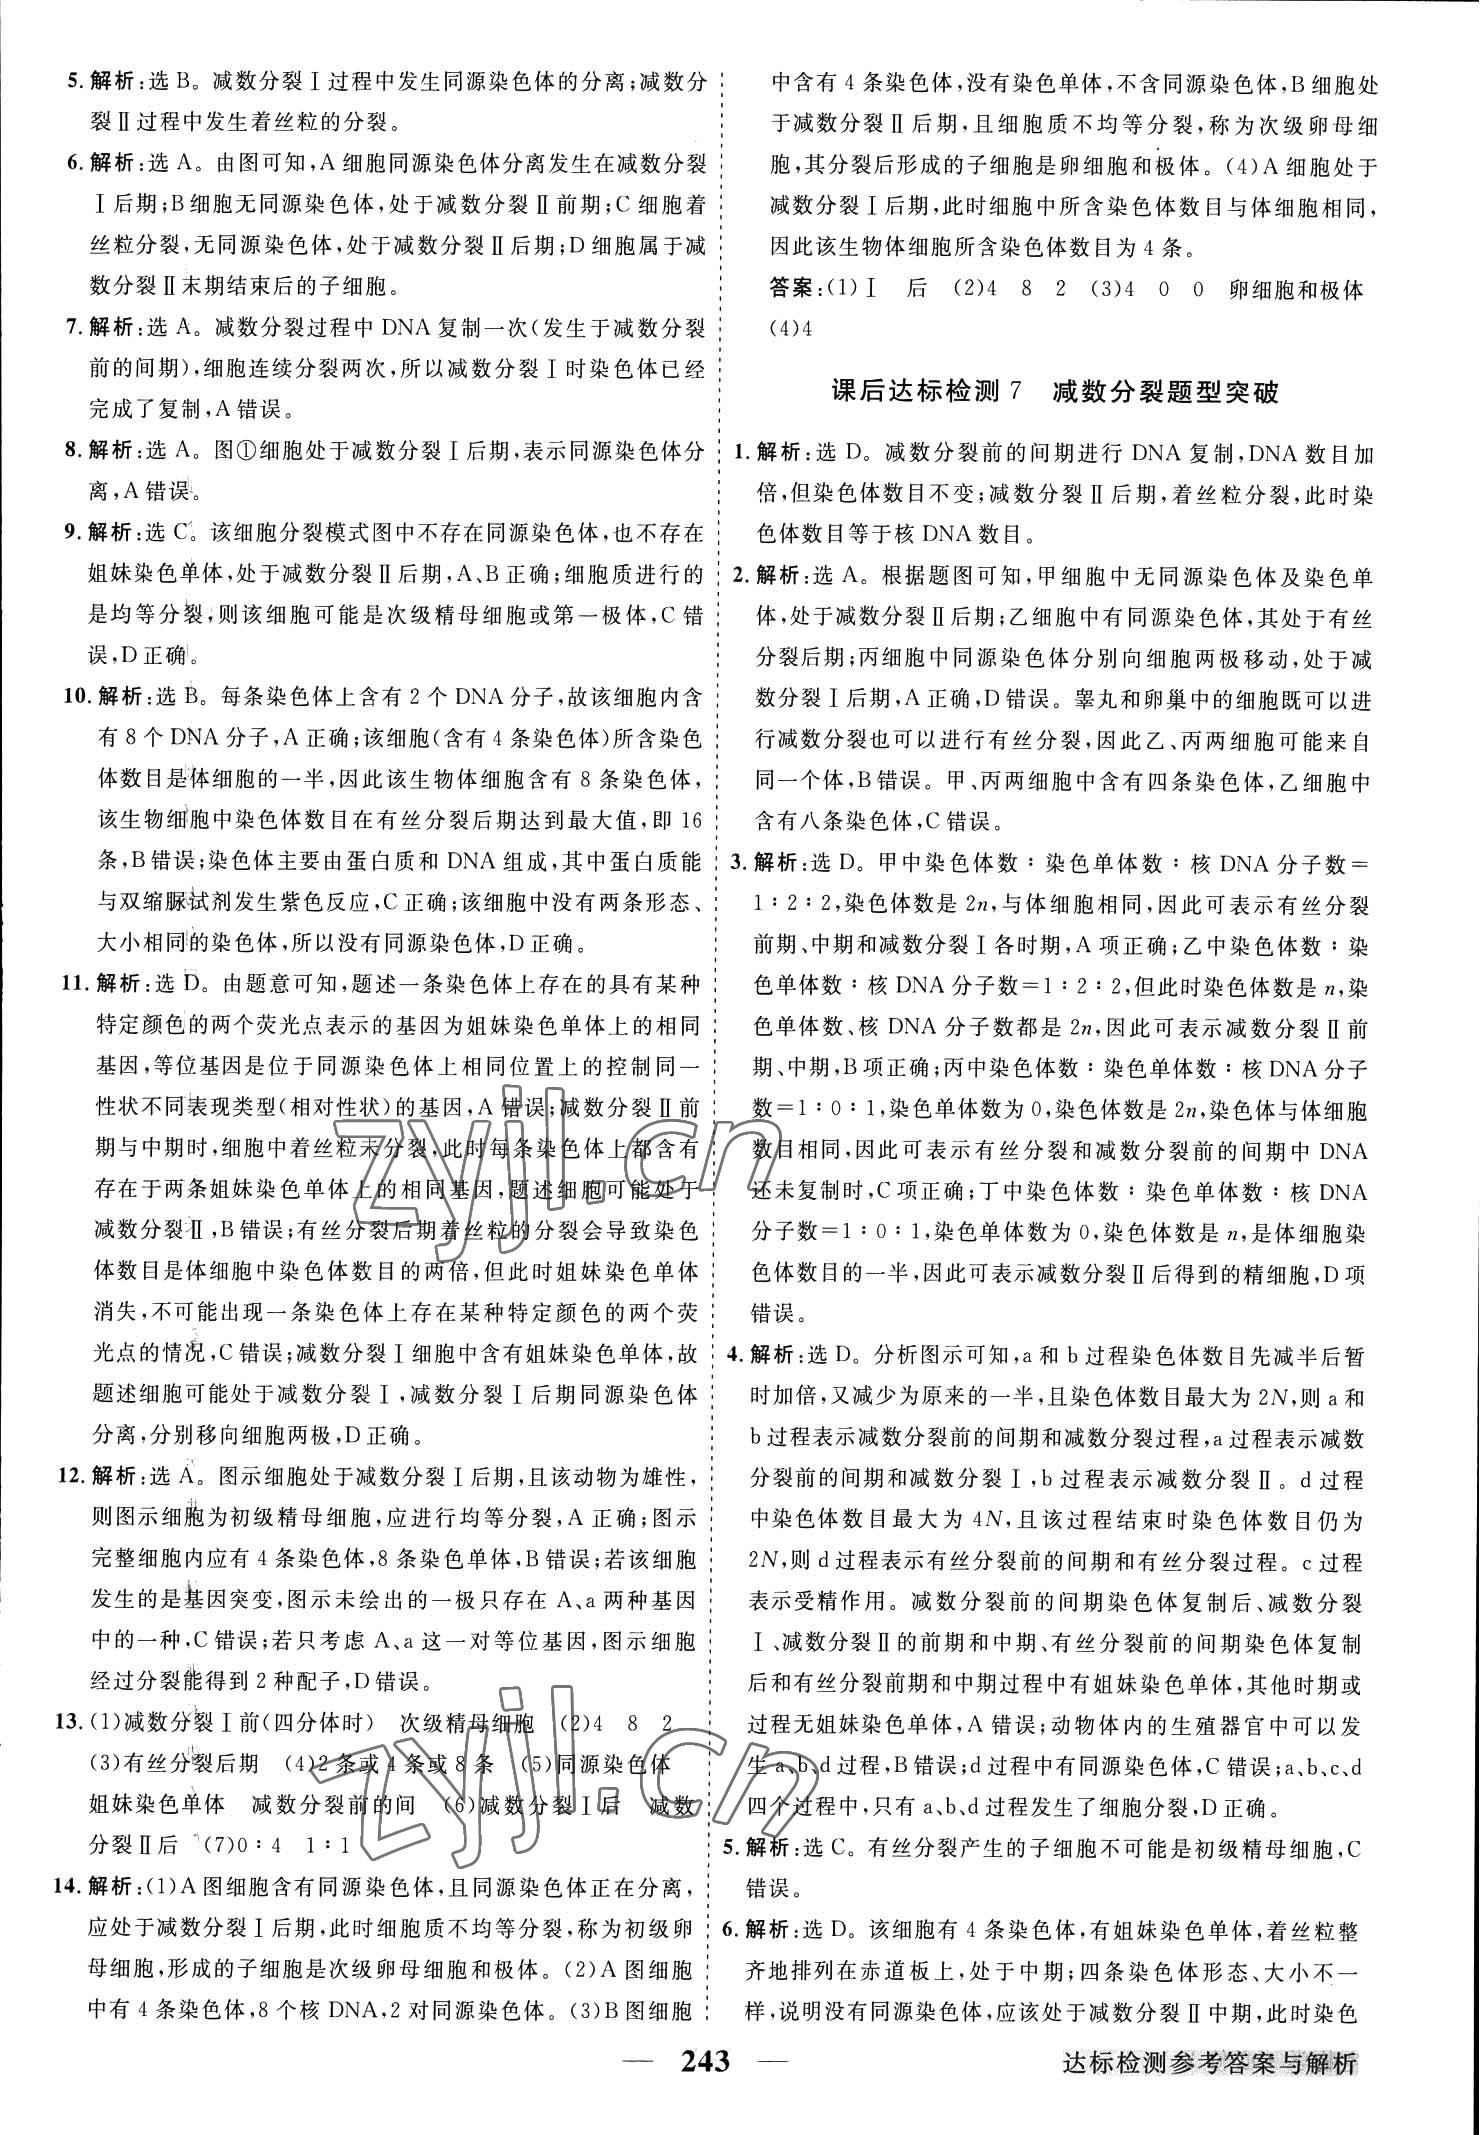 5. 解析:选 B。减数分裂Ⅰ过程中发生同源染色体的分离;减数分
裂Ⅱ过程中发生着丝粒的分裂。
6. 解析:选 A。由图可知,A 细胞同源染色体分离发生在减数分裂
Ⅰ后期;B 细胞无同源染色体,处于减数分裂Ⅱ前期;C 细胞着
丝粒分裂,无同源染色体,处于减数分裂Ⅱ后期;D 细胞属于减
数分裂Ⅱ末期结束后的子细胞。
7. 解析:选 A。减数分裂过程中 DNA 复制一次(发生于减数分裂
前的间期),细胞连续分裂两次,所以减数分裂Ⅰ时染色体已经
完成了复制,A 错误。
8. 解析:选 A。图①细胞处于减数分裂Ⅰ后期,表示同源染色体分
离,A 错误。
9. 解析:选 C。该细胞分裂模式图中不存在同源染色体,也不存在
姐妹染色单体,处于减数分裂Ⅱ后期,A、B 正确;细胞质进行的
是均等分裂,则该细胞可能是次级精母细胞或第一极体,C 错
误,D 正确。
10. 解析:选 B。每条染色体上含有 2 个 DNA 分子,故该细胞内含
有 8 个 DNA 分子,A 正确;该细胞(含有 4 条染色体)所含染色
体数目是体细胞的一半,因此该生物体细胞含有 8 条染色体,
该生物细胞中染色体数目在有丝分裂后期达到最大值,即 16
条,B 错误;染色体主要由蛋白质和 DNA 组成,其中蛋白质能
与双缩脲试剂发生紫色反应,C 正确;该细胞中没有两条形态、
大小相同的染色体,所以没有同源染色体,D 正确。
11. 解析:选 D。由题意可知,题述一条染色体上存在的具有某种
特定颜色的两个荧光点表示的基因为姐妹染色单体上的相同
基因,等位基因是位于同源染色体上相同位置上的控制同一
性状不同表现类型(相对性状)的基因,A 错误;减数分裂Ⅱ前
期与中期时,细胞中着丝粒未分裂,此时每条染色体上都含有
存在于两条姐妹染色单体上的相同基因,题述细胞可能处于
减数分裂Ⅱ,B 错误;有丝分裂后期着丝粒的分裂会导致染色
体数目是体细胞中染色体数目的两倍,但此时姐妹染色单体
消失,不可能出现一条染色体上存在某种特定颜色的两个荧
光点的情况,C 错误;减数分裂Ⅰ细胞中含有姐妹染色单体,故
题述细胞可能处于减数分裂Ⅰ,减数分裂Ⅰ后期同源染色体
分离,分别移向细胞两极,D 正确。
12. 解析:选 A。图示细胞处于减数分裂Ⅰ后期,且该动物为雄性,
则图示细胞为初级精母细胞,应进行均等分裂,A 正确;图示
完整细胞内应有 4 条染色体,8 条染色单体,B 错误;若该细胞
发生的是基因突变,图示未绘出的一极只存在 A、a 两种基因
中的一种,C 错误;若只考虑 A、a 这一对等位基因,图示细胞
经过分裂能得到 2 种配子,D 错误。
13. (1)减数分裂Ⅰ前(四分体时) 次级精母细胞 (2)4 8 2
(3)有丝分裂后期 (4)2 条或 4 条或 8 条 (5)同源染色体
姐妹染色单体 减数分裂前的间 (6)减数分裂Ⅰ后 减数
分裂Ⅱ后 (7)0∶4 1∶1
14. 解析:(1)A 图细胞含有同源染色体,且同源染色体正在分离,
应处于减数分裂Ⅰ后期,此时细胞质不均等分裂,称为初级卵
母细胞,形成的子细胞是次级卵母细胞和极体。(2)A 图细胞
中有 4 条染色体,8 个核 DNA,2 对同源染色体。(3)B 图细胞
中含有 4 条染色体,没有染色单体,不含同源染色体,B 细胞处
于减数分裂Ⅱ后期,且细胞质不均等分裂,称为次级卵母细
胞,其分裂后形成的子细胞是卵细胞和极体。(4)A 细胞处于
减数分裂Ⅰ后期,此时细胞中所含染色体数目与体细胞相同,
因此该生物体细胞所含染色体数目为 4 条。
答案:(1)Ⅰ 后 (2)4 8 2 (3)4 0 0 卵细胞和极体
(4)4
课后达标检测 7 减数分裂题型突破
1. 解析:选 D。减数分裂前的间期进行 DNA 复制,DNA 数目加
倍,但染色体数目不变;减数分裂Ⅱ后期,着丝粒分裂,此时染
色体数目等于核 DNA 数目。
2. 解析:选 A。根据题图可知,甲细胞中无同源染色体及染色单
体,处于减数分裂Ⅱ后期;乙细胞中有同源染色体,其处于有丝
分裂后期;丙细胞中同源染色体分别向细胞两极移动,处于减
数分裂Ⅰ后期,A 正确,D 错误。睾丸和卵巢中的细胞既可以进
行减数分裂也可以进行有丝分裂,因此乙、丙两细胞可能来自
同一个体,B 错误。甲、丙两细胞中含有四条染色体,乙细胞中
含有八条染色体,C 错误。
3. 解析:选 D。甲中染色体数∶染色单体数∶核 DNA 分子数=
1∶2∶2,染色体数是 2n,与体细胞相同,因此可表示有丝分裂
前期、中期和减数分裂Ⅰ各时期,A 项正确;乙中染色体数∶染
色单体数∶核 DNA 分子数=1∶2∶2,但此时染色体数是 n,染
色单体数、核 DNA 分子数都是 2n,因此可表示减数分裂Ⅱ前
期、中期,B 项正确;丙中染色体数∶染色单体数∶核 DNA 分子
数=1∶0∶1,染色单体数为 0,染色体数是 2n,染色体与体细胞
数目相同,因此可表示有丝分裂和减数分裂前的间期中 DNA
还未复制时,C 项正确;丁中染色体数∶染色单体数∶核 DNA
分子数=1∶0∶1,染色单体数为 0,染色体数是 n,是体细胞染
色体数目的一半,因此可表示减数分裂Ⅱ后得到的精细胞,D 项
错误。
4. 解析:选 D。分析图示可知,a 和 b 过程染色体数目先减半后暂
时加倍,又减少为原来的一半,且染色体数目最大为 2N,则 a 和
b 过程表示减数分裂前的间期和减数分裂过程,a 过程表示减数
分裂前的间期和减数分裂Ⅰ,b 过程表示减数分裂Ⅱ。d 过程
中染色体数目最大为 4N,且该过程结束时染色体数目仍为
2N,则 d 过程表示有丝分裂前的间期和有丝分裂过程。c 过程
表示受精作用。减数分裂前的间期染色体复制后、减数分裂
Ⅰ、减数分裂Ⅱ的前期和中期、有丝分裂前的间期染色体复制
后和有丝分裂前期和中期过程中有姐妹染色单体,其他时期或
过程无姐妹染色单体,A 错误;动物体内的生殖器官中可以发
生 a、b、d 过程,B 错误;d 过程中有同源染色体,C 错误;a、b、c、d
四个过程中,只有 a、b、d 过程发生了细胞分裂,D 正确。
5. 解析:选 C。有丝分裂产生的子细胞不可能是初级精母细胞,C
错误。
6. 解析:选 D。该细胞有 4 条染色体,有姐妹染色单体,着丝粒整
齐地排列在赤道板上,处于中期;四条染色体形态、大小不一
样,说明没有同源染色体,应该处于减数分裂Ⅱ中期,此时染色
— 243 —
达标检测参考答案与解析
zyjl.cn
zyjl.cn